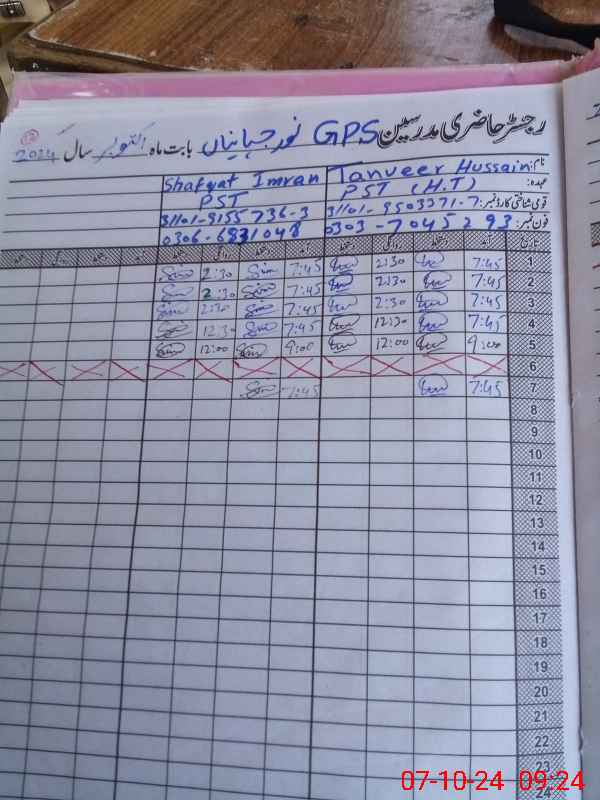 رجسٹر حاضری مدرسین GPS نور جہانیاں بابت ماہ اکتوبر سال 2024
نام: Tanveer Hussain Shafqat Imran
عہدہ: PST (H.T) PST
قومی شناختی کارڈ نمبر: 31101-9503371-7 31101-9155736-3
فون نمبر: 0303-7045293 0306-6831048
تاریخ آمد دستخط روانگی دستخط آمد دستخط روانگی دستخط
1 7:45 2:30 7:45 2:30
2 7:45 2:30 7:45 2:30
3 7:45 2:30 7:45 2:30
4 7:45 12:30 7:45 12:30
5 9:00 12:00 9:00 12:00
6
7 7:45 7:45
8
9
10
11
12
13
14
15
16
17
18
19
20
21
22
23
24
07-10-24 09:24